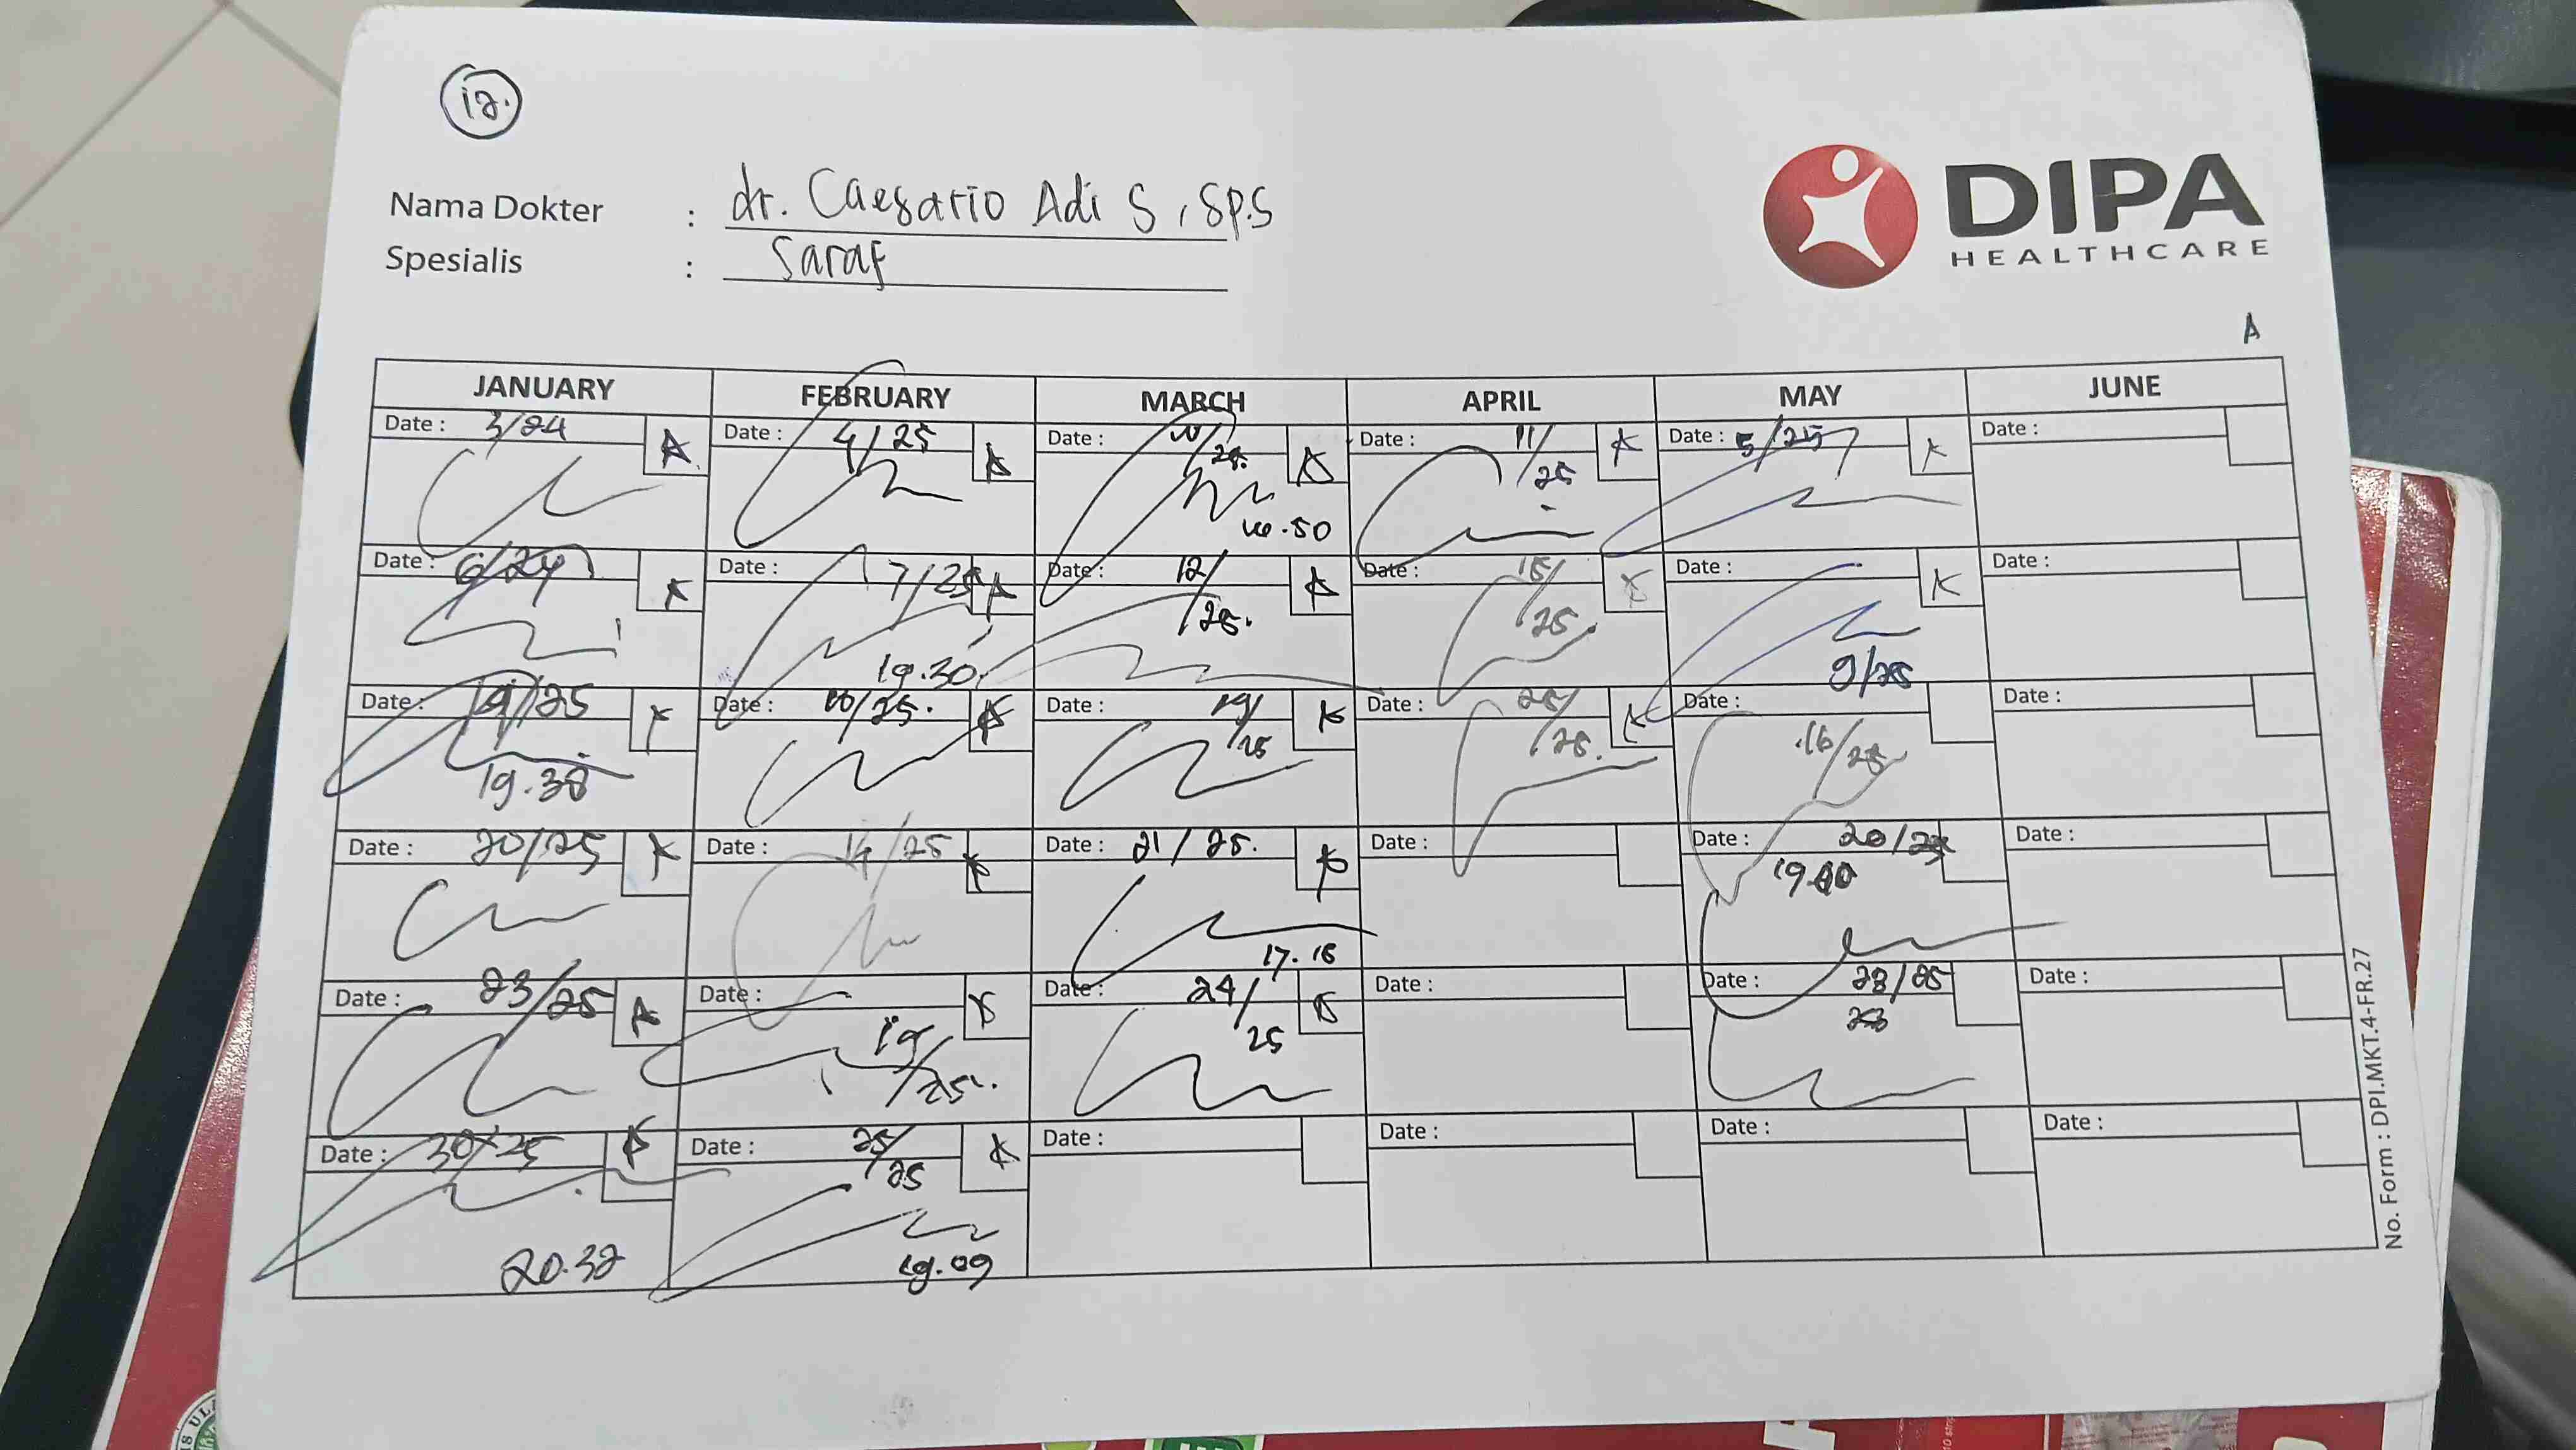 12.
Nama Dokter : dr. Caesario Adi S, Sp.S
Spesialis : Saraf
DIPA
HEALTHCARE
A
JANUARY FEBRUARY MARCH APRIL MAY JUNE
Date : 3/24 A Date : 4/25 A Date : A Date : 11/25 A Date : 5/25 A Date :
16.50
Date : 6/24 A Date : 7/25 A Date : 12/25. A Date : 15/25 A Date : A Date :
19.30 9/25
Date : /25 A Date : 10/25. A Date : 19/25 A Date : /25. A Date : 16/25 Date :
19.38
Date : 20/25 A Date : 14/25 A Date : 21/25. A Date : Date : 20/25 Date :
17.15
Date : 23/25 A Date : 19/25. A Date : 24/25 A Date : Date : 23/25 Date :
Date : 30/25 A Date : 25/25 A Date : Date : Date : Date :
20.32 19.09
No. Form : DPI.MKT.4-FR.27